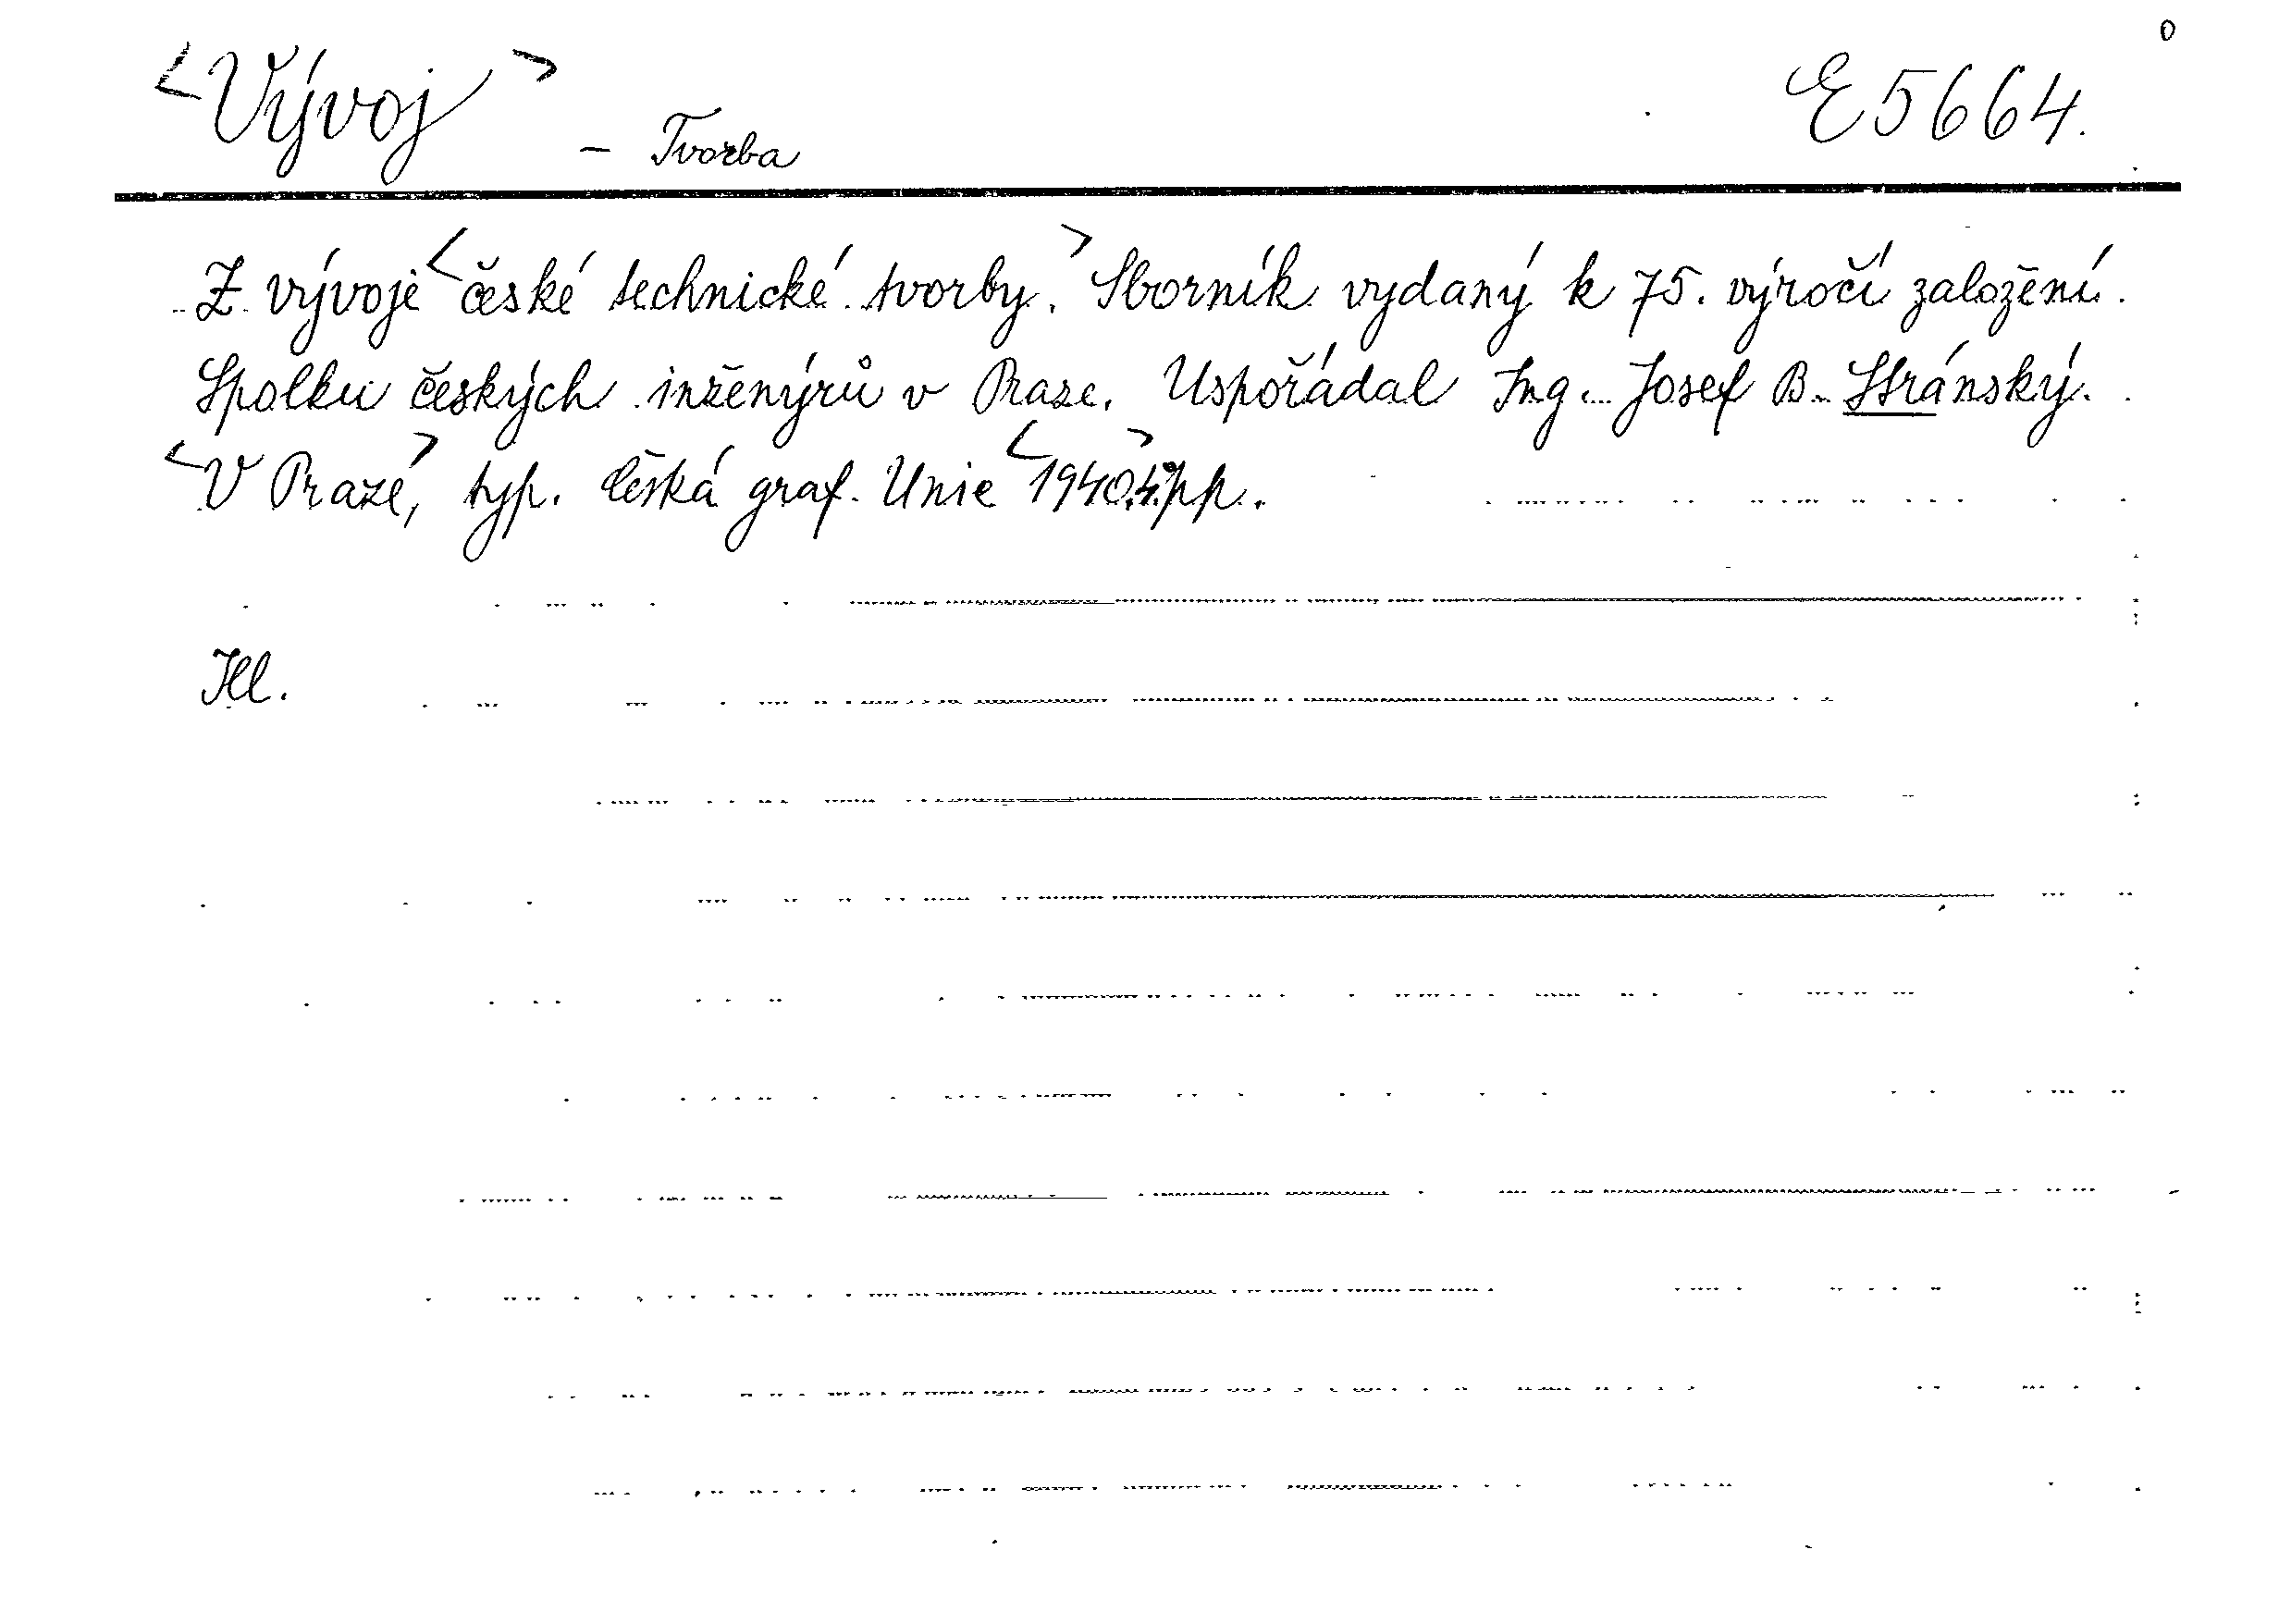 0
<Vývoj> - Tvorba E 5664.
Z vývoje <české technické tvorby.> Sborník vydaný k 75. výročí založení
Spolku českých inženýrů v Praze. Uspořádal Ing. Josef B. Stránský.
<V Praze>, typ. Česká graf. Unie <1940.> pp.
Ill.